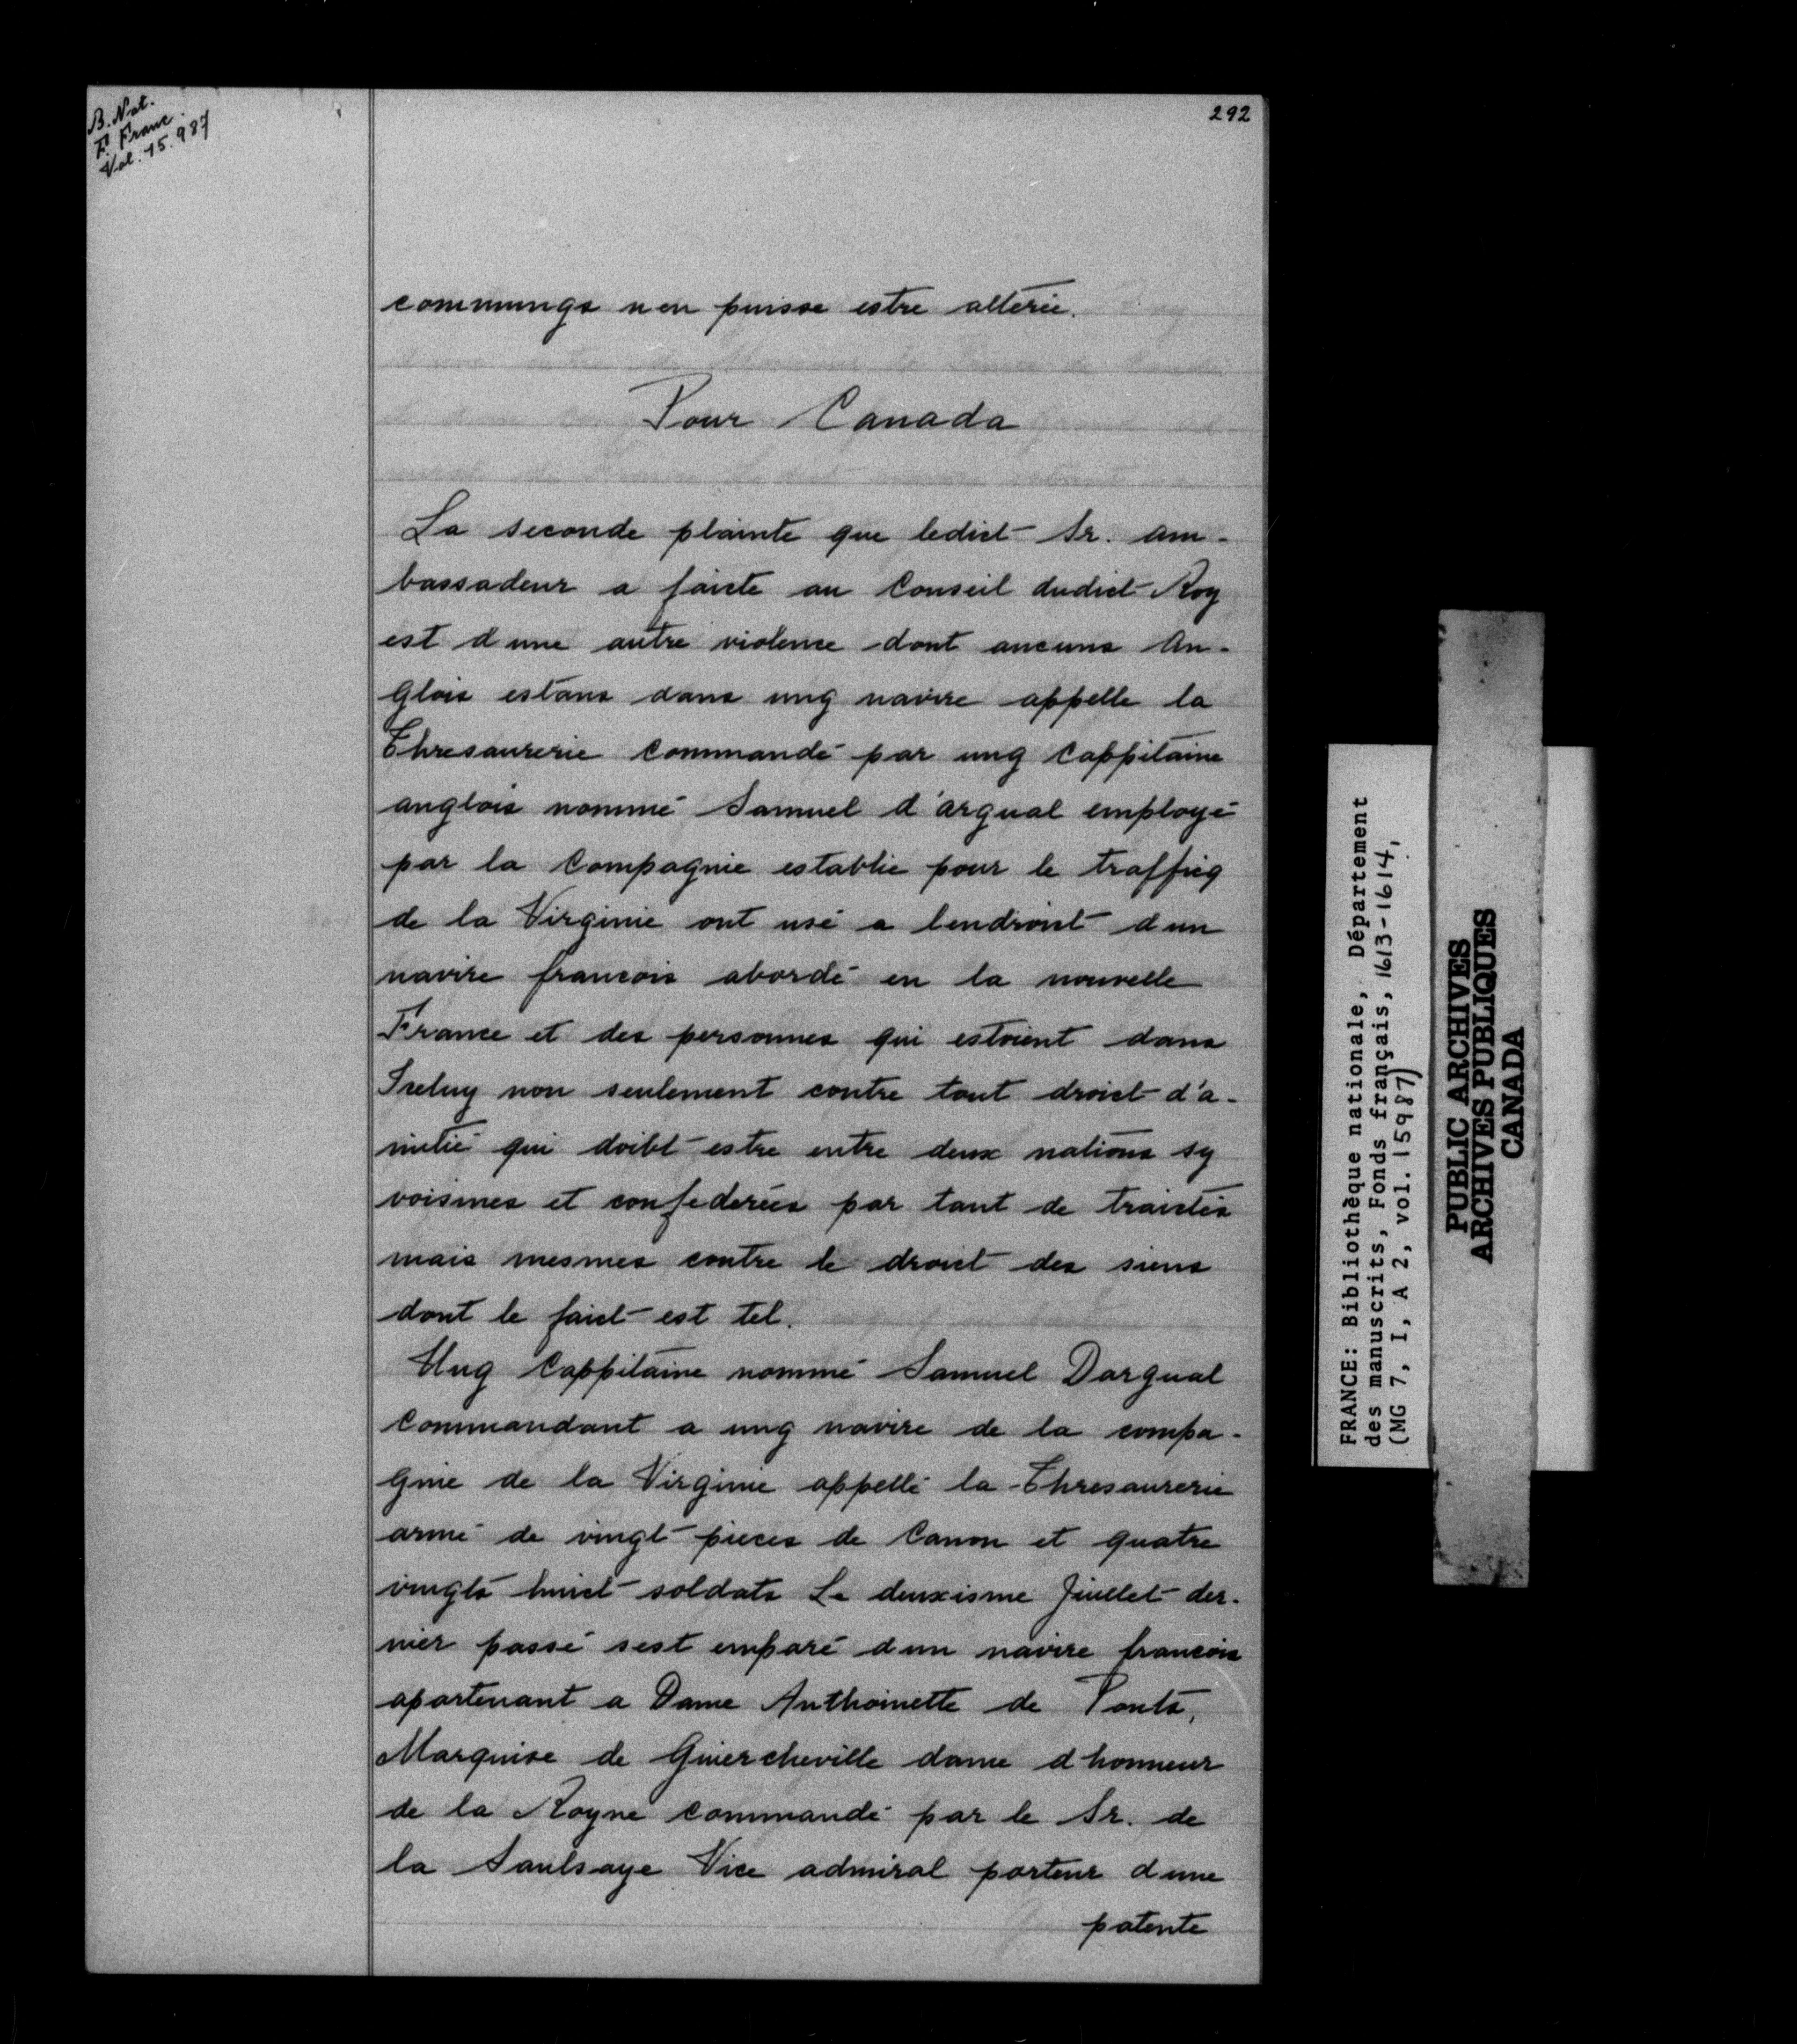 B. Nat.
F. Franc.
Vol. 15.987
292
communge n en puisse estre alterée.
Pour Canada
La seconde plainte que ledict Sr. am-
bassadeur a faicte au Conseil dudict Roy
est d une autre violence dont aucuns An-
glois estans dans ung navire appelle la
Thresaurerie commandé par ung cappitaine
anglois nommé Samuel d'Argual employé
par la Compagnie establie pour le traffiq
de la Virginie ont usé a lendroict d un
navire francois abordé en la nouvelle
France et des personnes qui estoient dans
Iceluy non seulement contre tout droict d'a-
mitié qui doibt estre entre deux nations sy
voisines et confederées par tant de traictés
mais mesmes contre le droict des siens
dont le faict est tel.
Ung Cappitaine nommé Samuel Dargual
commandant a ung navire de la compa-
gnie de la Virginie appellé la Thresaurerie
armé de vingt pieces de Canon et quatre
vingts huict soldats Le deuxisme Juillet der-
nier passé sest emparé d un navire francois
apartenant a Dame Anthoinette de Ponts,
Marquise de Guiercheville dame d honneur
de la Royne commandé par le Sr. de
la Saulsaye Vice admiral porteur d une
patente
FRANCE: Bibliothèque nationale, Département
des manuscrits, Fonds français, 1613-1614,
(MG 7, I, A 2, vol. 15987)
PUBLIC ARCHIVES
ARCHIVES PUBLIQUES
CANADA